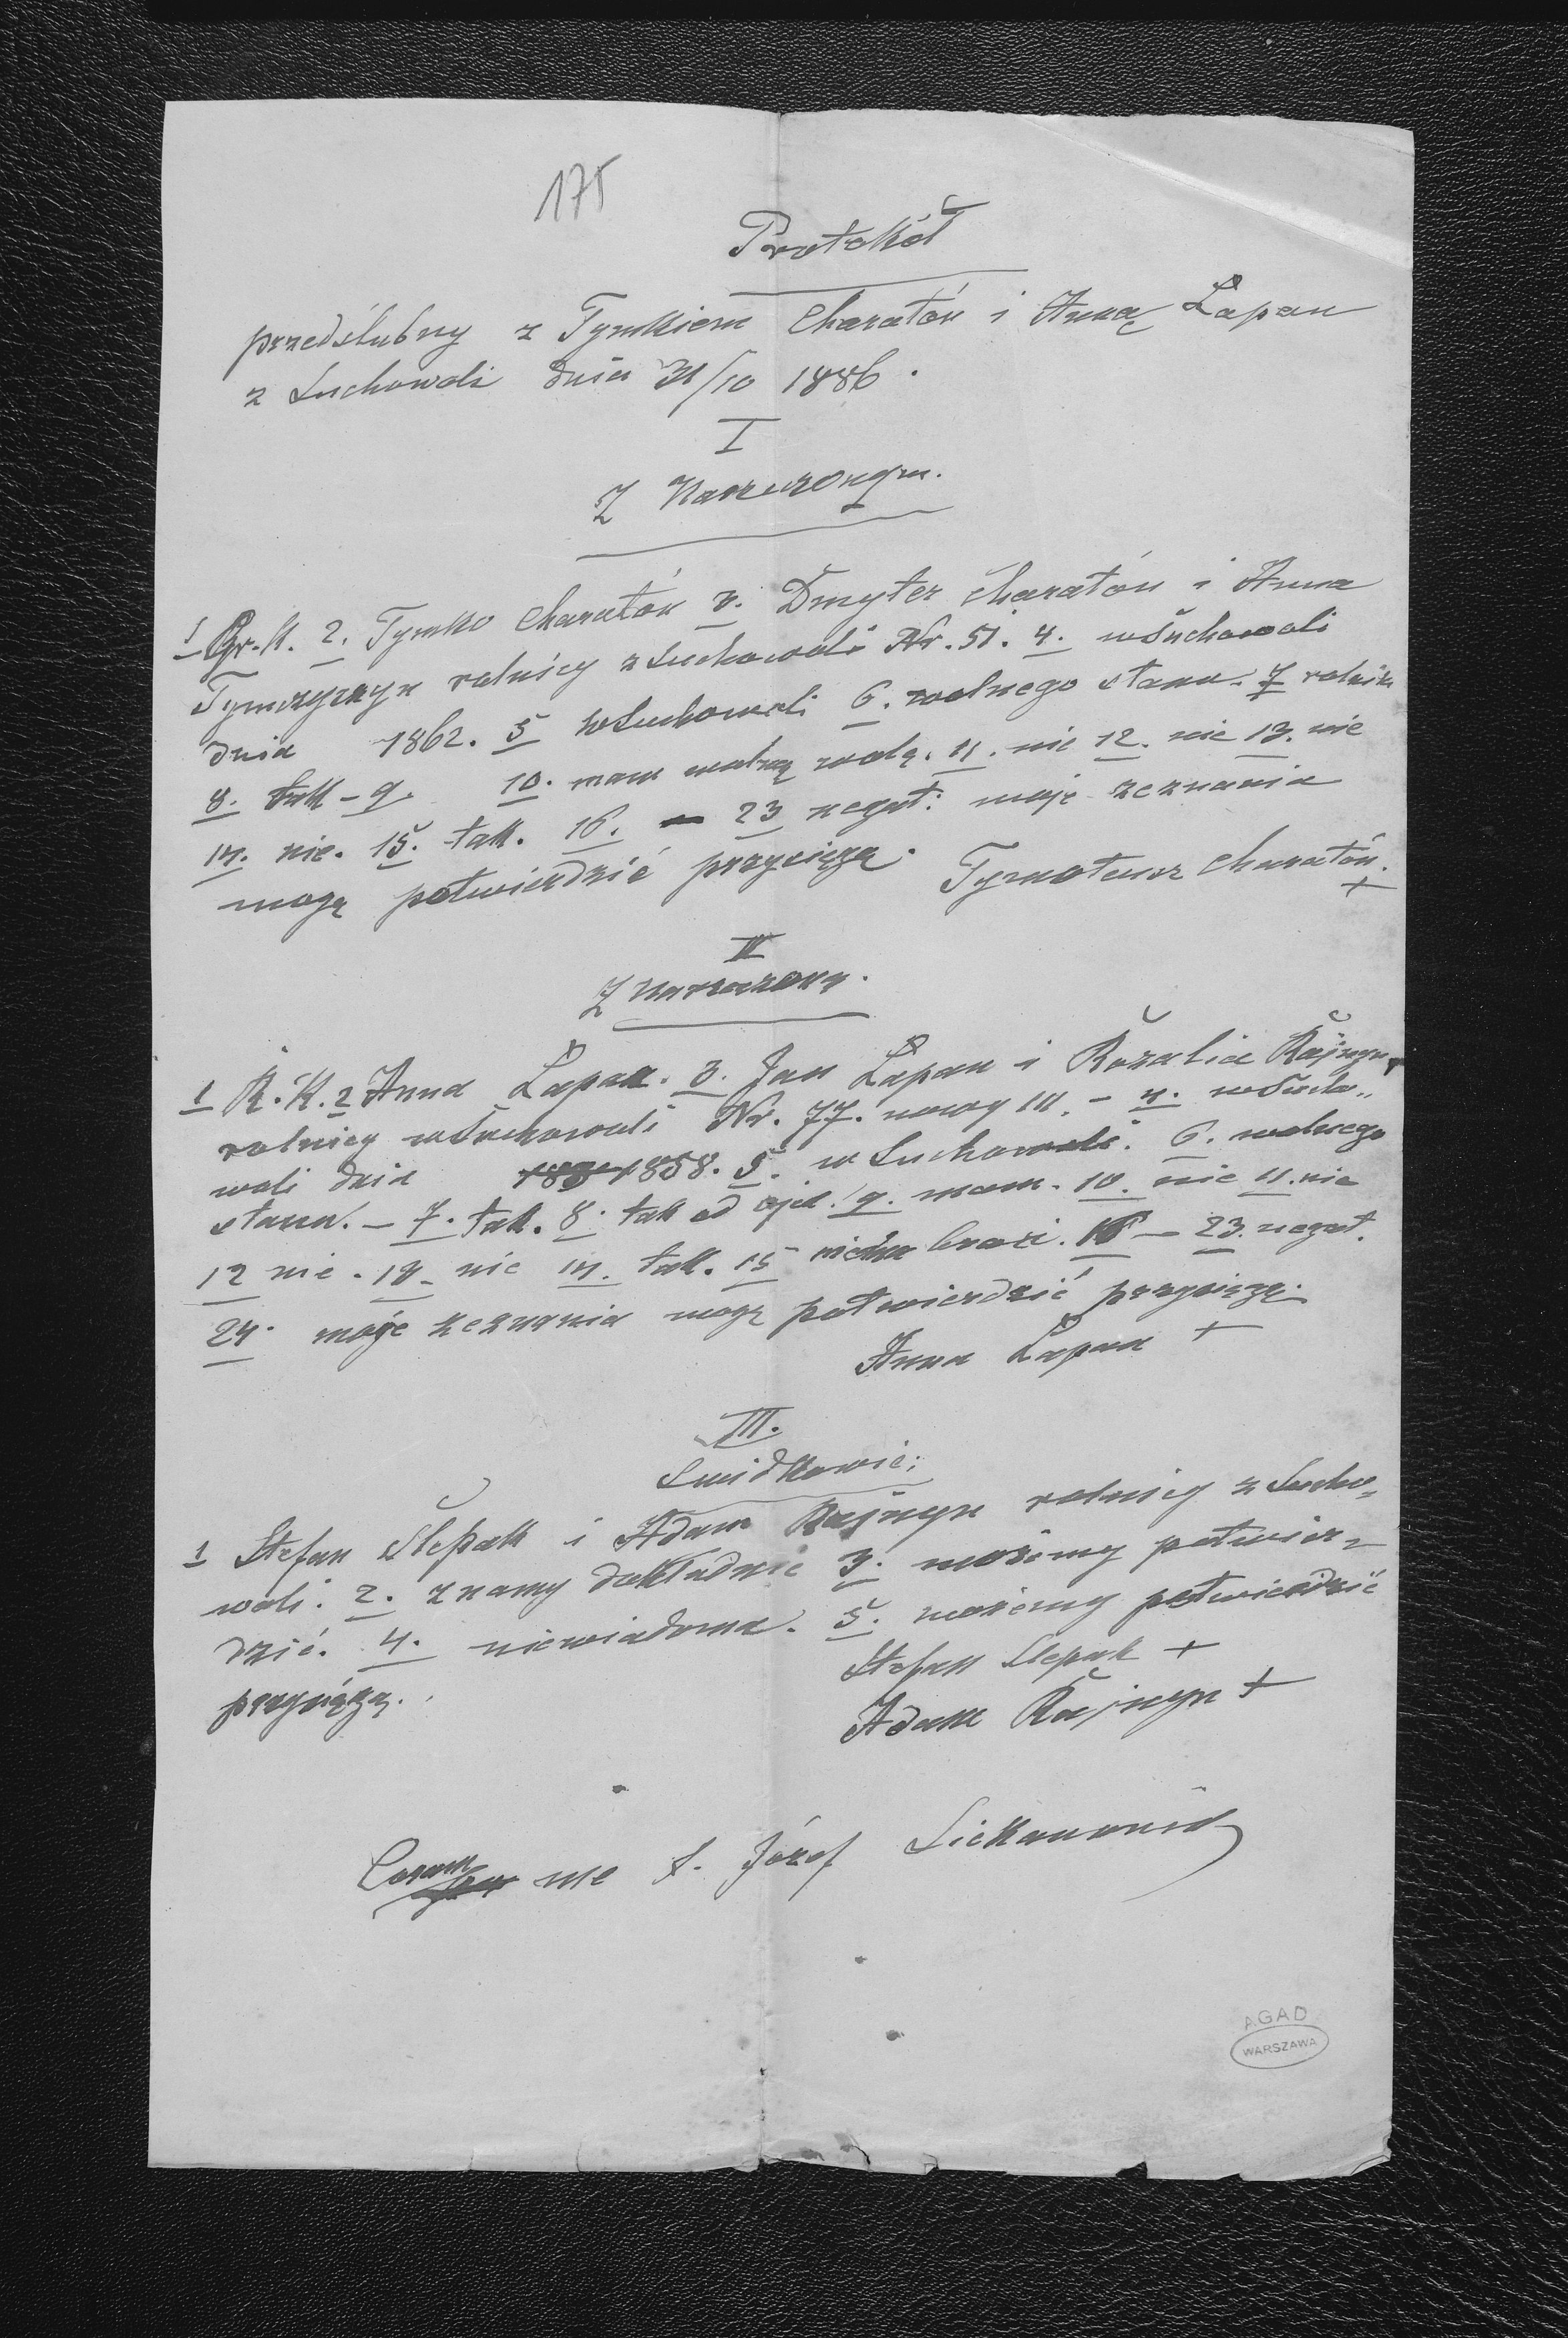 175
Protokół
przedślubny z Tymkiem Charatón i Anną Łapan
z Suchowoli dnia 31/10 1886.
I
Z Narzeczonym.
1 Gr. K. 2. Tymko Charatón 3. Dmyter Charatón i Anna
Tymczyszyn rolnicy z Suchowoli Nr. 51. 4. w Suchowoli
dnia 1862. 5 w Suchowoli 6. wolnego stanu. 7 rolnik
8. tak - 9. 10. mam wolną wolę. 11. nie 12. nie 13. nie
14. nie. 15. tak. 16. — 23 negat: moje zeznania
mogę potwierdzić przysięgą. Tymoteusz Charatón.
+
II
Z Narzeczoną.
1 R. K. 2 Anna Łapan. 3. Jan Łapan i Rozalia
rolnicy w Suchowoli Nr. 77. nowy 111. - 4. w Sucho-
woli dnia 1858. 5. w Suchowoli. 6. wolnego
stanu. - 7. tak. 8. tak od ojca. 9. mam. 10. nie 11. nie
12 nie. 13. nie 14. tak. 15 16 — 23. negat.
24. moje zeznania mogę potwierdzić przysięgą.
Anna Łapan +
III.
Swidkowie:
1 Stefan Slepak i Adam Rajzyn rolnicy z Sucho-
woli. 2. znamy dokładnie 3. możemy potwier-
dzić. 4. niewiadoma. 5. możemy potwierdzić
przysięgą.
Stefan Slepak +
Adam Rajzyn +
Coram me X. Józef
AGAD
WARSZAWA